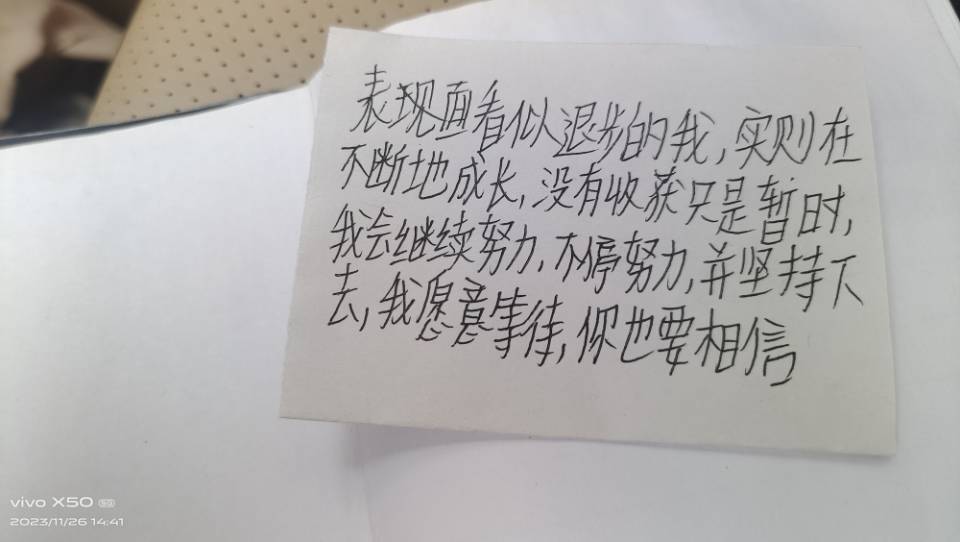 表现面看似退步的我，实则在
不断地成长，没有收获只是暂时，
我会继续努力，不停努力，并坚持下
去，我愿意等待，你也要相信
vivo X50 5G
2023/11/26 14:41